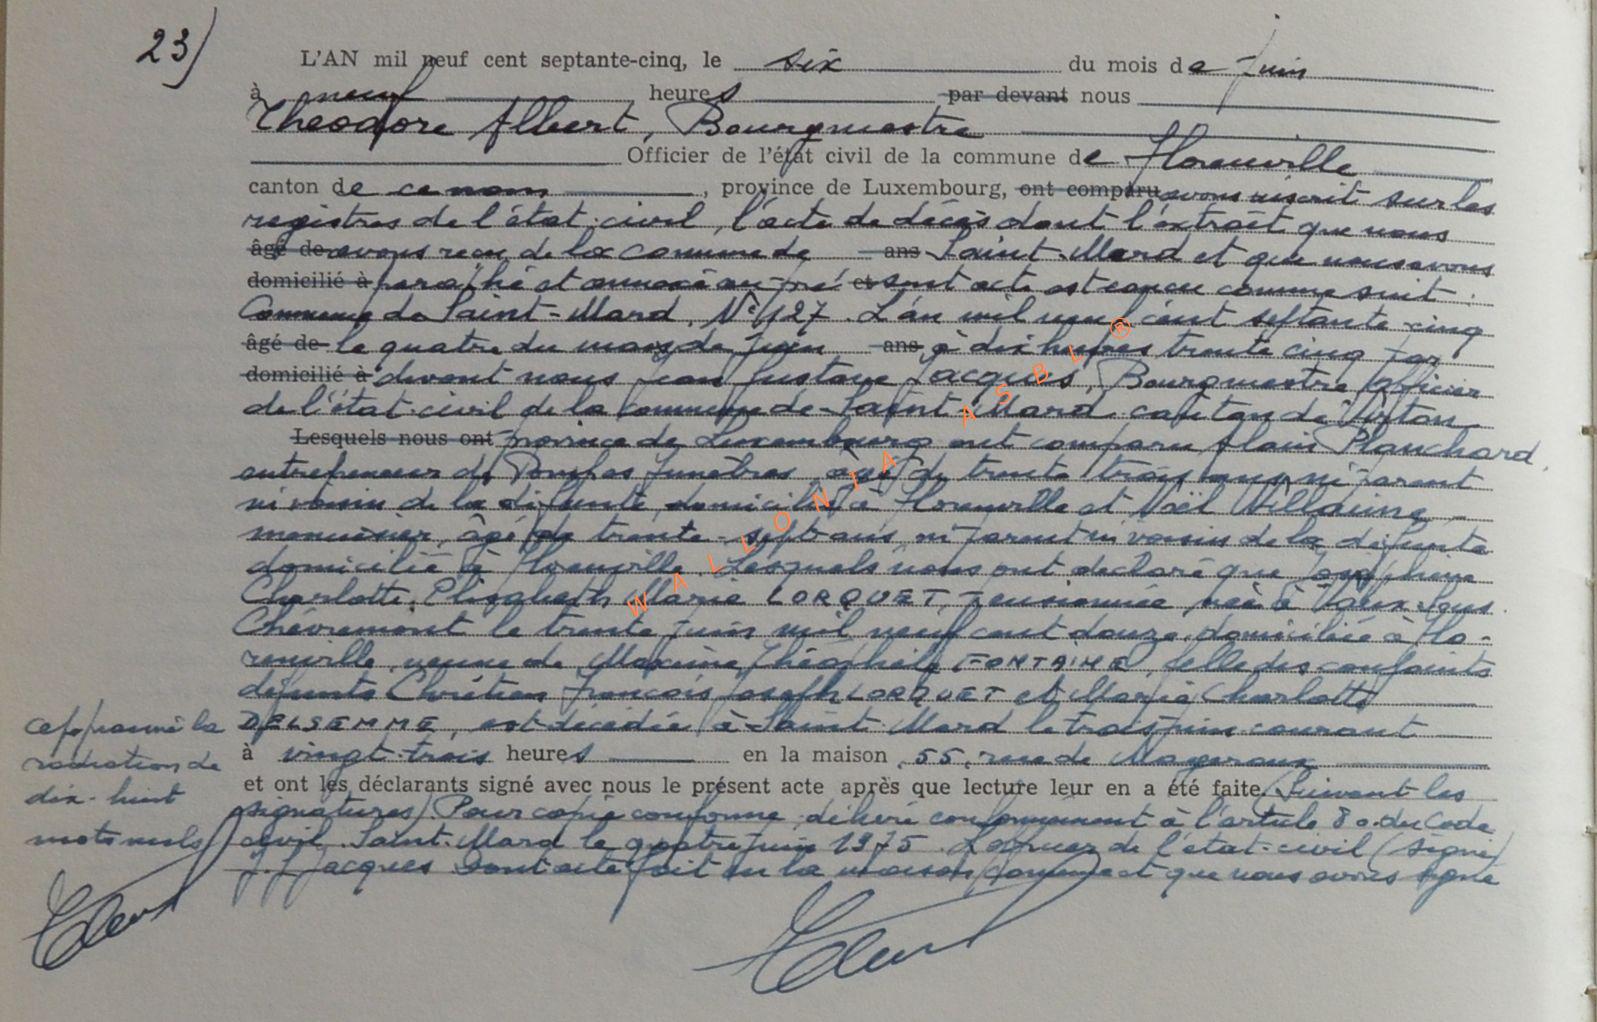 23)
L'AN mil neuf cent septante-cinq, le six du mois de juin
à neuf heures par devant nous
Théodore Albert, Bourgmestre
Officier de l'état civil de la commune de Florenville
canton de ce nom, province de Luxembourg, ont comparu avons inscrit sur les
registres de l'état-civil, l'acte de décès dont l'extrait que nous
âgé de avons reçu de la commune de ans Saint-Mard et que nous avons
domicilié à paraphé et annexé au pré et sent acte est conçu comme suit :
Commune de Saint-Mard. N° 127. L'an mil neuf cent septante-cinq
âgé de le quatre du mois de juin ans à dix heures trente cinq par
domicilié à devant nous Jean Gustave Jacques, Bourgmestre officier
de l'état-civil de la commune de Saint-Mard canton de Virton
Lesquels nous ont province de Luxembourg ont comparu Alain Planchard,
entrepreneur de Pompes funèbres âgé de trente trois ans, ni parent
ni voisin de la défunte, domicilié à Florenville et Noël Willaime,
menuisier, âgé de trente-sept ans, ni parent ni voisin de la défunte
domicilié à Florenville. Lesquels nous ont déclaré que Joséphine
Charlotte Elisabeth Marie LORQUET, pensionnée, née à Vaux-Sous-
Chèvremont le trente juin mil neuf cent douze, domiciliée à Flo-
renville, veuve de Maxime Théophile FONTAINE, fille des conjoints
défunts Chrétien François Joseph LORQUET et Marie Charlotte
DELSEMME, est décédée à Saint-Mard le trois juin courant
à vingt-trois heures en la maison, 55, rue de Mageroux
et ont les déclarants signé avec nous le présent acte après que lecture leur en a été faite. (Suivent les
signatures) Pour copie conforme, délivré conformément à l'article 80 du Code
civil. Saint-Mard le quatre juin 1975. L'officier de l'état-civil (signé)
J. G. Jacques Dont acte fait en la maison commune et que nous avons signé
approuvé la
radiation de
dix-huit
mots nuls
WALLONIA ASBL®